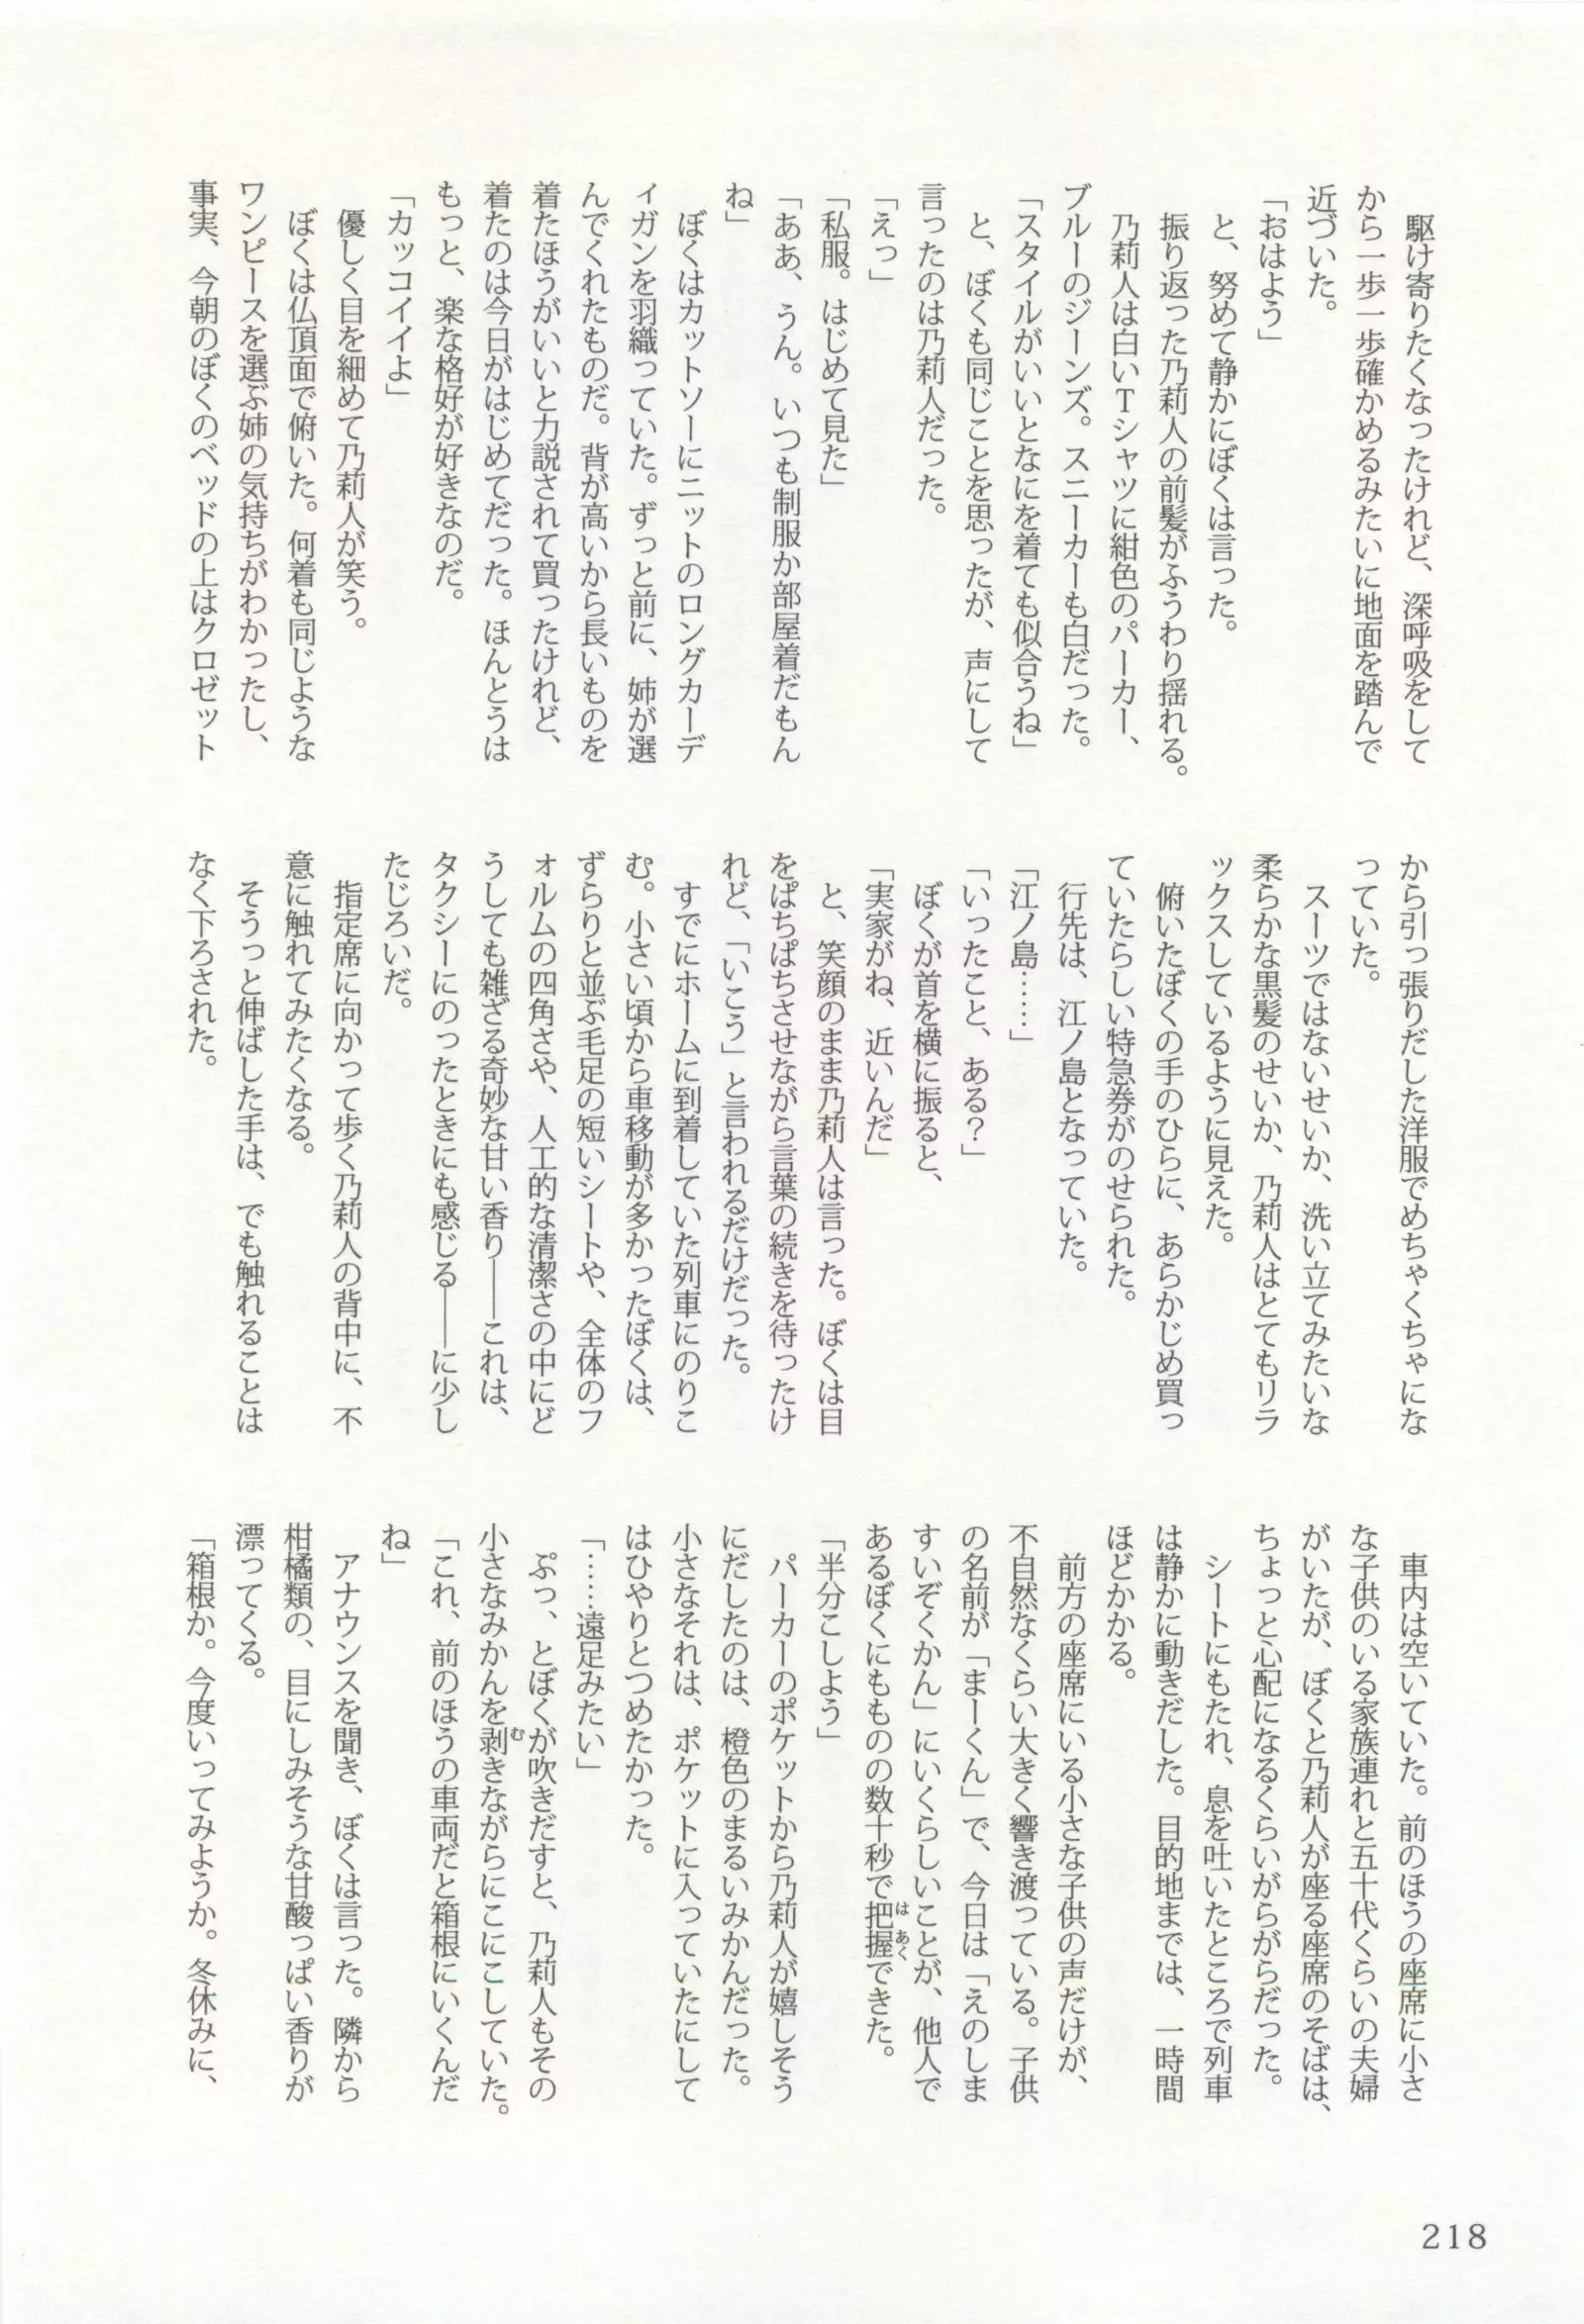 駆け寄りたくなったけれど、深呼吸をして
から一歩一歩確かめるみたいに地面を踏んで
近づいた。
「おはよう」
と、努めて静かにぼくは言った。
振り返った乃莉人の前髪がふうわり揺れる。
乃莉人は白いTシャツに紺色のパーカー、
ブルーのジーンズ。スニーカーも白だった。
「スタイルがいいとなにを着ても似合うね」
と、ぼくも同じことを思ったが、声にして
言ったのは乃莉人だった。
「えっ」
「私服。はじめて見た」
「ああ、うん。いつも制服か部屋着だもん
ね」
ぼくはカットソーにニットのロングカーデ
ィガンを羽織っていた。ずっと前に、姉が選
んでくれたものだ。背が高いから長いものを
着たほうがいいと力説されて買ったけれど、
着たのは今日がはじめてだった。ほんとうは
もっと、楽な格好が好きなのだ。
「カッコイイよ」
優しく目を細めて乃莉人が笑う。
ぼくは仏頂面で俯いた。何着も同じような
ワンピースを選ぶ姉の気持ちがわかったし、
事実、今朝のぼくのベッドの上はクロゼット
から引っ張りだした洋服でめちゃくちゃにな
っていた。
スーツではないせいか、洗い立てみたいな
柔らかな黒髪のせいか、乃莉人はとてもリラ
ックスしているように見えた。
俯いたぼくの手のひらに、あらかじめ買っ
ていたらしい特急券がのせられた。
行先は、江ノ島となっていた。
「江ノ島……」
「いったこと、ある?」
ぼくが首を横に振ると、
「実家がね、近いんだ」
と、笑顔のまま乃莉人は言った。ぼくは目
をぱちぱちさせながら言葉の続きを待ったけ
れど、「いこう」と言われるだけだった。
すでにホームに到着していた列車にのりこ
む。小さい頃から車移動が多かったぼくは、
ずらりと並ぶ毛足の短いシートや、全体のフ
ォルムの四角さや、人工的な清潔さの中にど
うしても雑ざる奇妙な甘い香り――これは、
タクシーにのったときにも感じる――に少し
たじろいだ。
指定席に向かって歩く乃莉人の背中に、不
意に触れてみたくなる。
そうっと伸ばした手は、でも触れることは
なく下ろされた。
車内は空いていた。前のほうの座席に小さ
な子供のいる家族連れと五十代くらいの夫婦
がいたが、ぼくと乃莉人が座る座席のそばは、
ちょっと心配になるくらいがらがらだった。
シートにもたれ、息を吐いたところで列車
は静かに動きだした。目的地までは、一時間
ほどかかる。
前方の座席にいる小さな子供の声だけが、
不自然なくらい大きく響き渡っている。子供
の名前が「まーくん」で、今日は「えのしま
すいぞくかん」にいくらしいことが、他人で
あるぼくにもものの数十秒で把握できた。
「半分こしよう」
パーカーのポケットから乃莉人が嬉しそう
にだしたのは、橙色のまるいみかんだった。
小さなそれは、ポケットに入っていたにして
はひやりとつめたかった。
「……遠足みたい」
ぷっ、とぼくが吹きだすと、乃莉人もその
小さなみかんを剥きながらにこにこしていた。
「これ、前のほうの車両だと箱根にいくんだ
ね」
アナウンスを聞き、ぼくは言った。隣から
柑橘類の、目にしみそうな甘酸っぱい香りが
漂ってくる。
「箱根か。今度いってみようか。冬休みに、
218